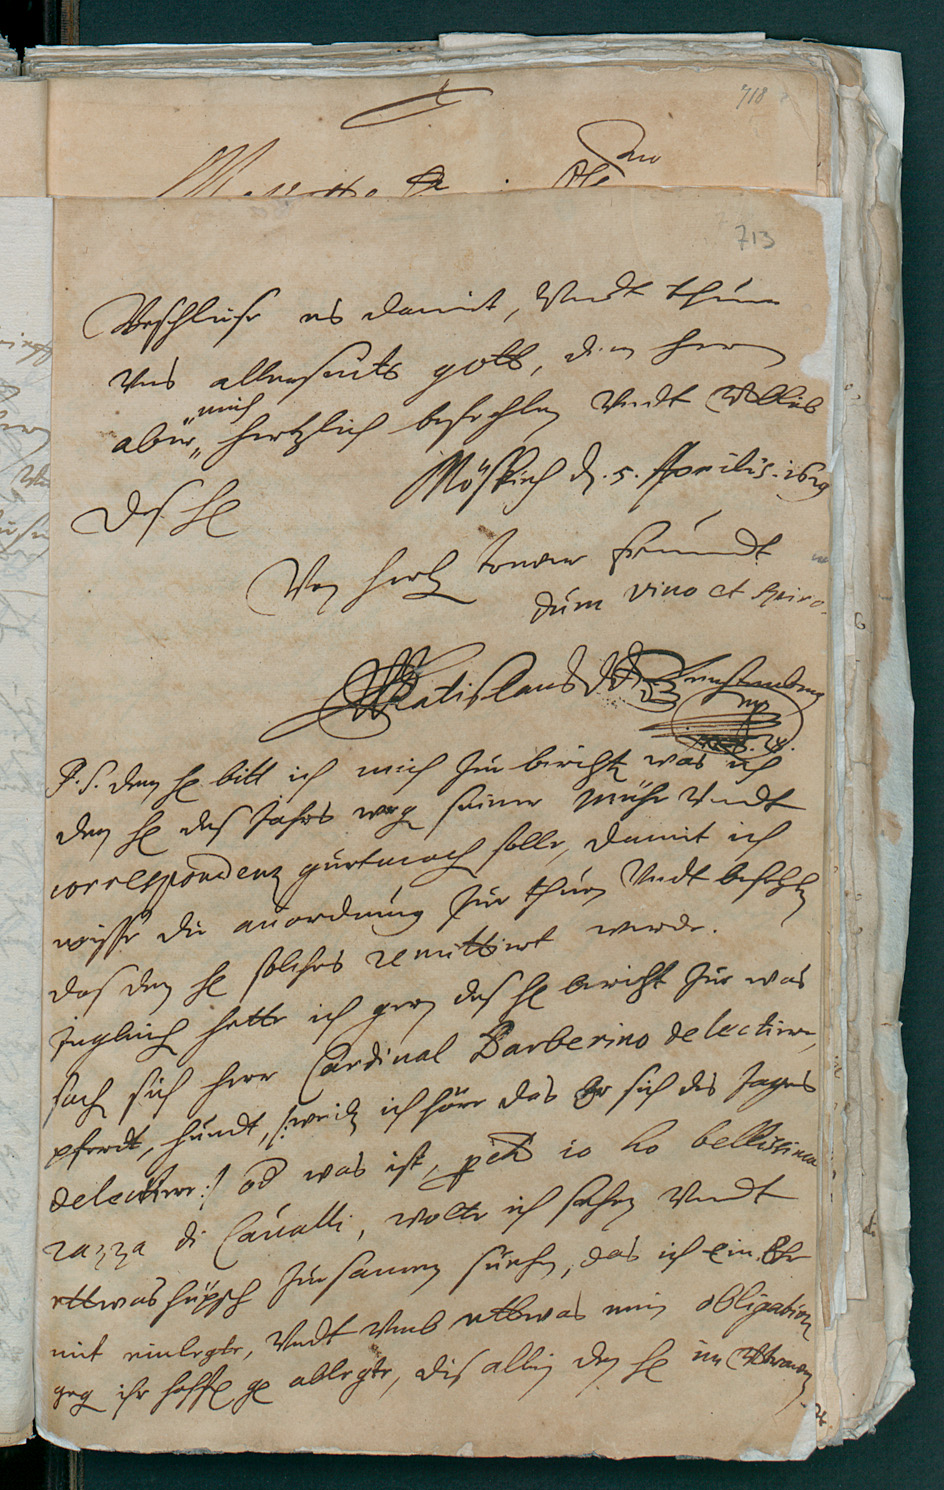 718
713
Beschliese es damit, Undt thuen
Uns allerseits gott, dem herren
mich
aber hertzlich befehlen Undt Willib
Möskirch d. 5. Aprilis. 1629
Des H
Von hertzen trewer freündt
düm vivo et spiro.
Wratislaus Furstenberg
mp
P.S. den H bitt ich mich zue berichten was ich
den H des Jahrs weg seiner mühe Undt
correspondenz guetmachen solle, damit ich
wisse die anordnung zue thuen Undt befehlen
das den H solches remittiert werde.
Ingleich hette ich gern des H bericht zue was
sach sich herr Cardinal Barberino delectiere,
pferdt, hundt, /:weiln ich höre das Er sich des Jagens
delectiere:/ od was ist, perche io ho bellissima
razza di Cavalli, wolte ich sehen Undt
ettwas hüpsch zuesamen suechen, das ich ein Ehr
mit einlegte, Undt Umb ettwas mein obligation
geg ihr ablegte, dis allein den H im Vertrawen